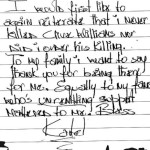 I would first like to
again reiterate that "I never
killed Chuk Williams nor
did I order his killing.
To my family I want to say
thank you for being there
for me. Equally to my fans
who's unremitting support
mattered to me. Bless